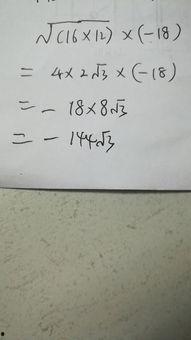 √(16×12) ×(-18)
= 4×2√3 ×(-18)
= - 18×8√3
= - 144√3